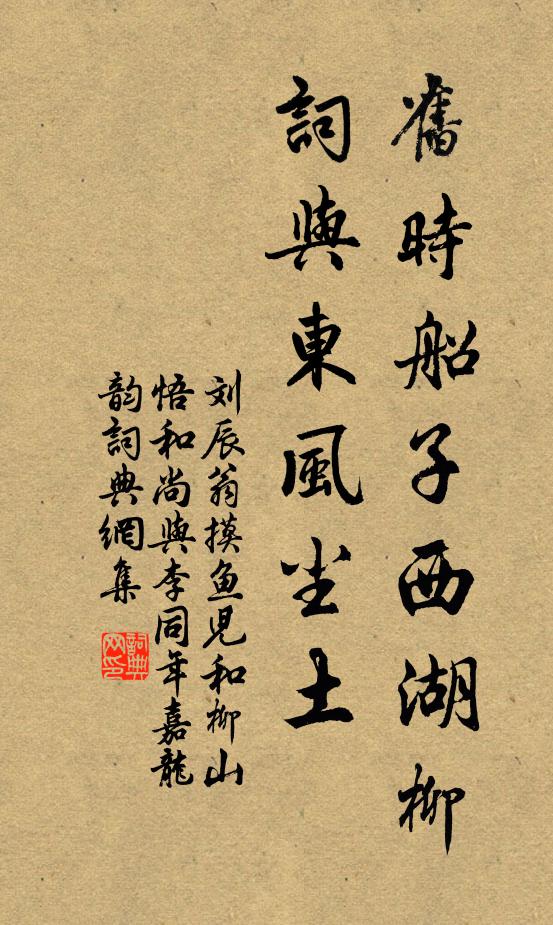 舊時船子西湖柳
詞與東風尘土
刘辰翁摸鱼児和柳山
悟和尚與李同年嘉龍
韵詞典網集
詞典
网印